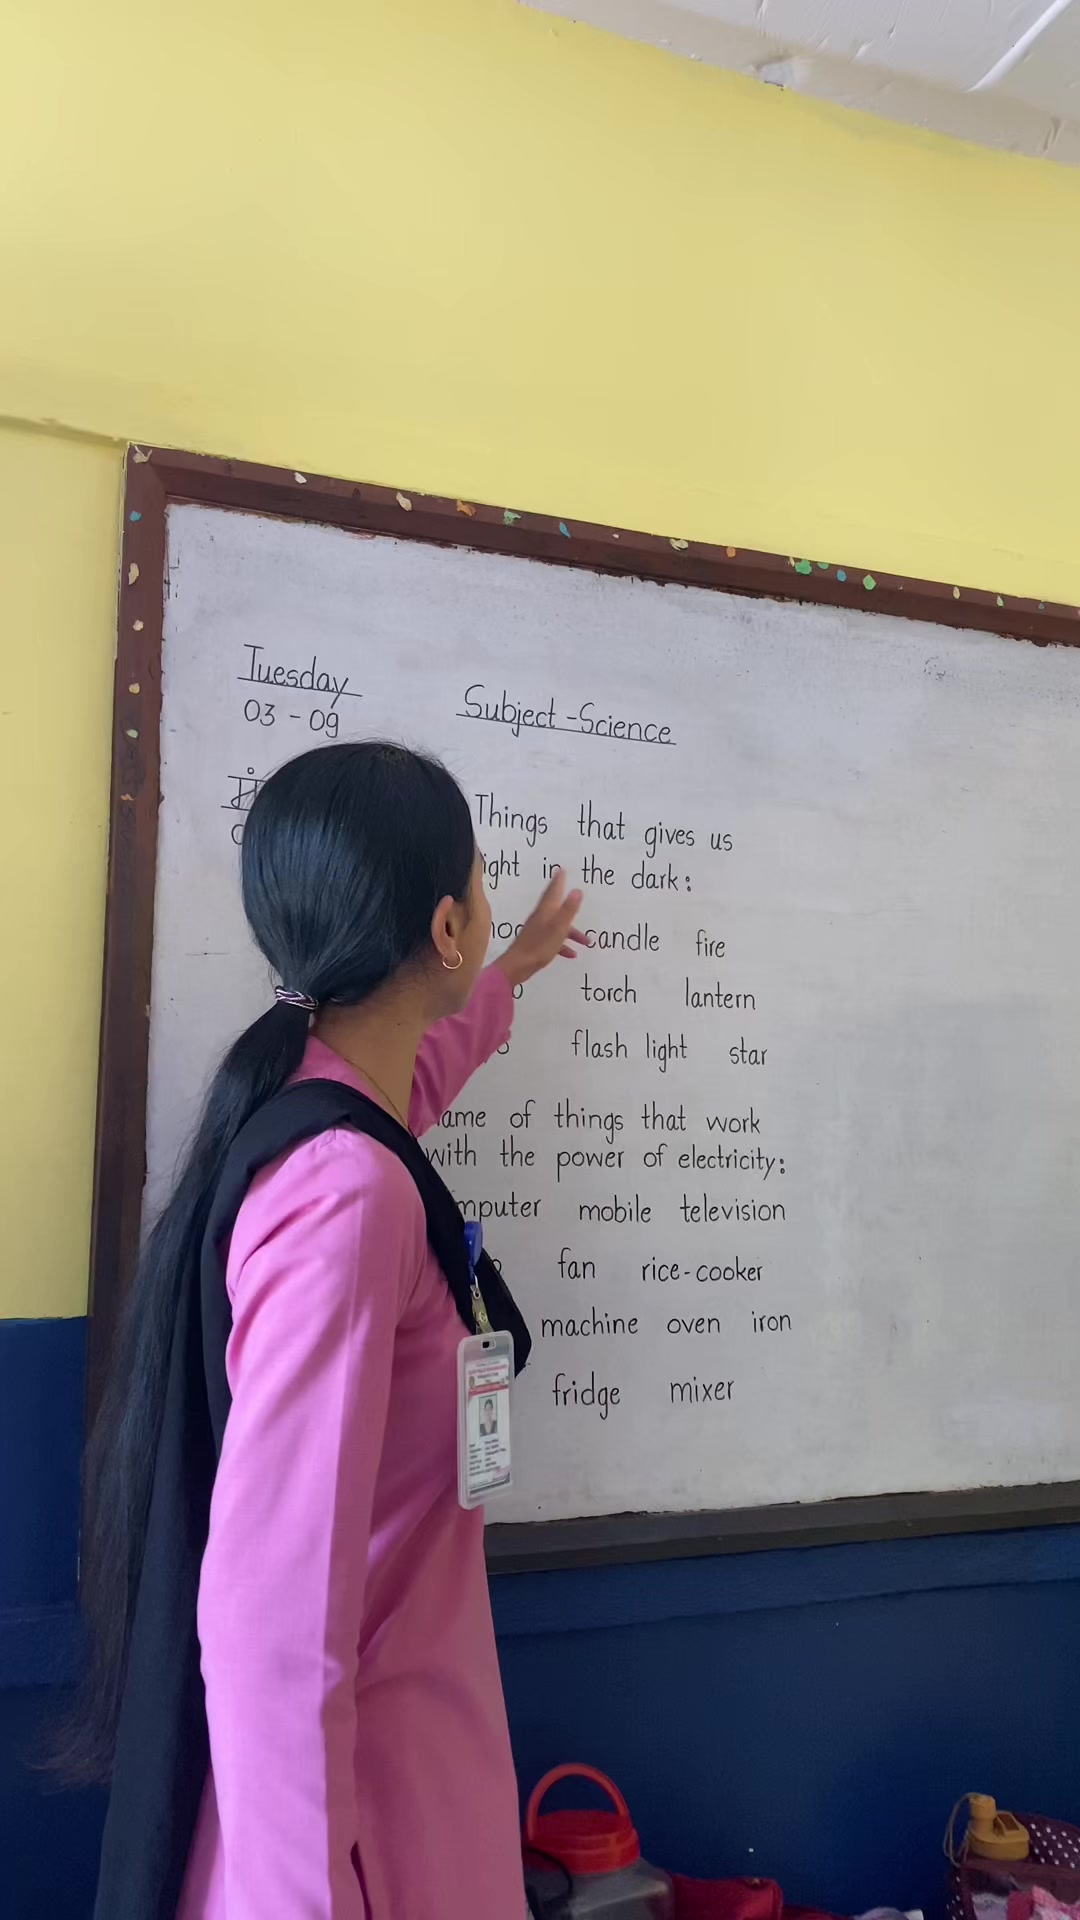 Tuesday
03 - 09
Subject - Science
Things that gives us
in the dark:
candle fire
torch lantern
flash light star
of things that work
with the power of electricity:
mobile television
fan rice-cooker
machine oven iron
fridge mixer